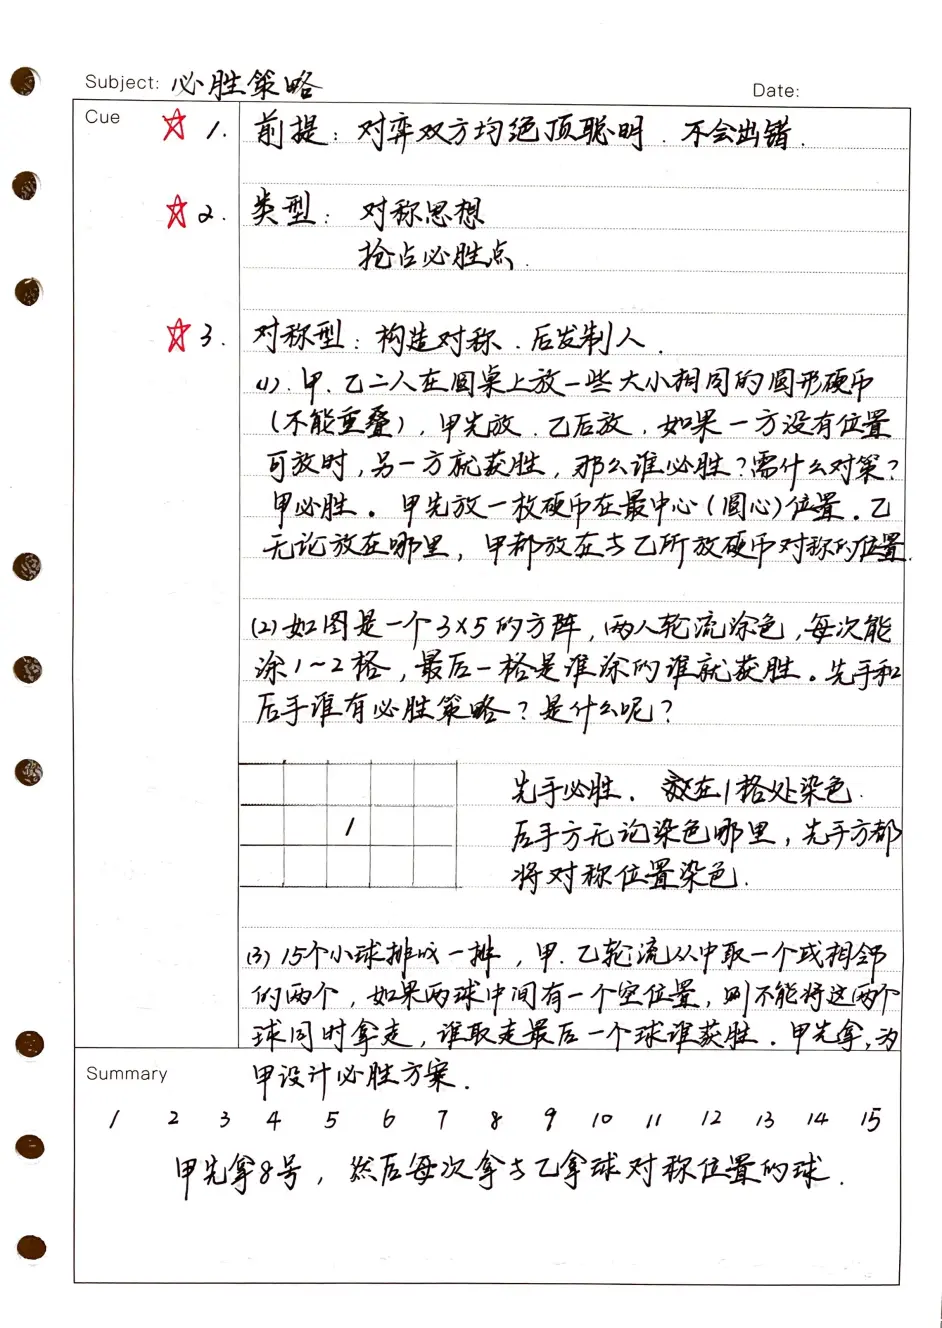 Subject: 必胜策略
Date:
Cue
☆ 1. 前提：对弈双方均绝顶聪明．不会出错．
☆ 2. 类型：对称思想
抢占必胜点．
☆ 3. 对称型：构造对称．后发制人．
(1). 甲．乙二人在圆桌上放一些大小相同的圆形硬币
(不能重叠)，甲先放．乙后放，如果一方没有位置
可放时，另一方就获胜，那么谁必胜？需什么对策？
甲必胜．甲先放一枚硬币在最中心(圆心)位置．乙
无论放在哪里，甲都放在与乙所放硬币对称的位置．
(2) 如图是一个3×5的方阵，两人轮流涂色，每次能
涂1~2格，最后一格是谁涂的谁就获胜。先手和
后手谁有必胜策略？是什么呢？
1
先手必胜．在1格处染色．
后手方无论染色哪里，先手方都
将对称位置染色．
(3) 15个小球排成一排，甲．乙轮流从中取一个或相邻
的两个，如果两球中间有一个空位置，则不能将这两个
球同时拿走，谁取走最后一个球谁获胜．甲先拿，为
Summary
甲设计必胜方案．
1 2 3 4 5 6 7 8 9 10 11 12 13 14 15
甲先拿8号，然后每次拿与乙拿球对称位置的球．